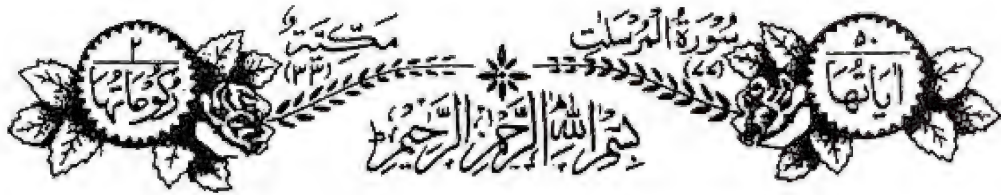 ٥٠
اٰيَاتُهَا
سُوْرَةُ الْمُرْسَلٰتِ
(٧٧)
مَكِّيَّةٌ
(٣٣)
٢
رُكُوْعَاتُهَا
بِسْمِ اللّٰهِ الرَّحْمٰنِ الرَّحِيْمِ